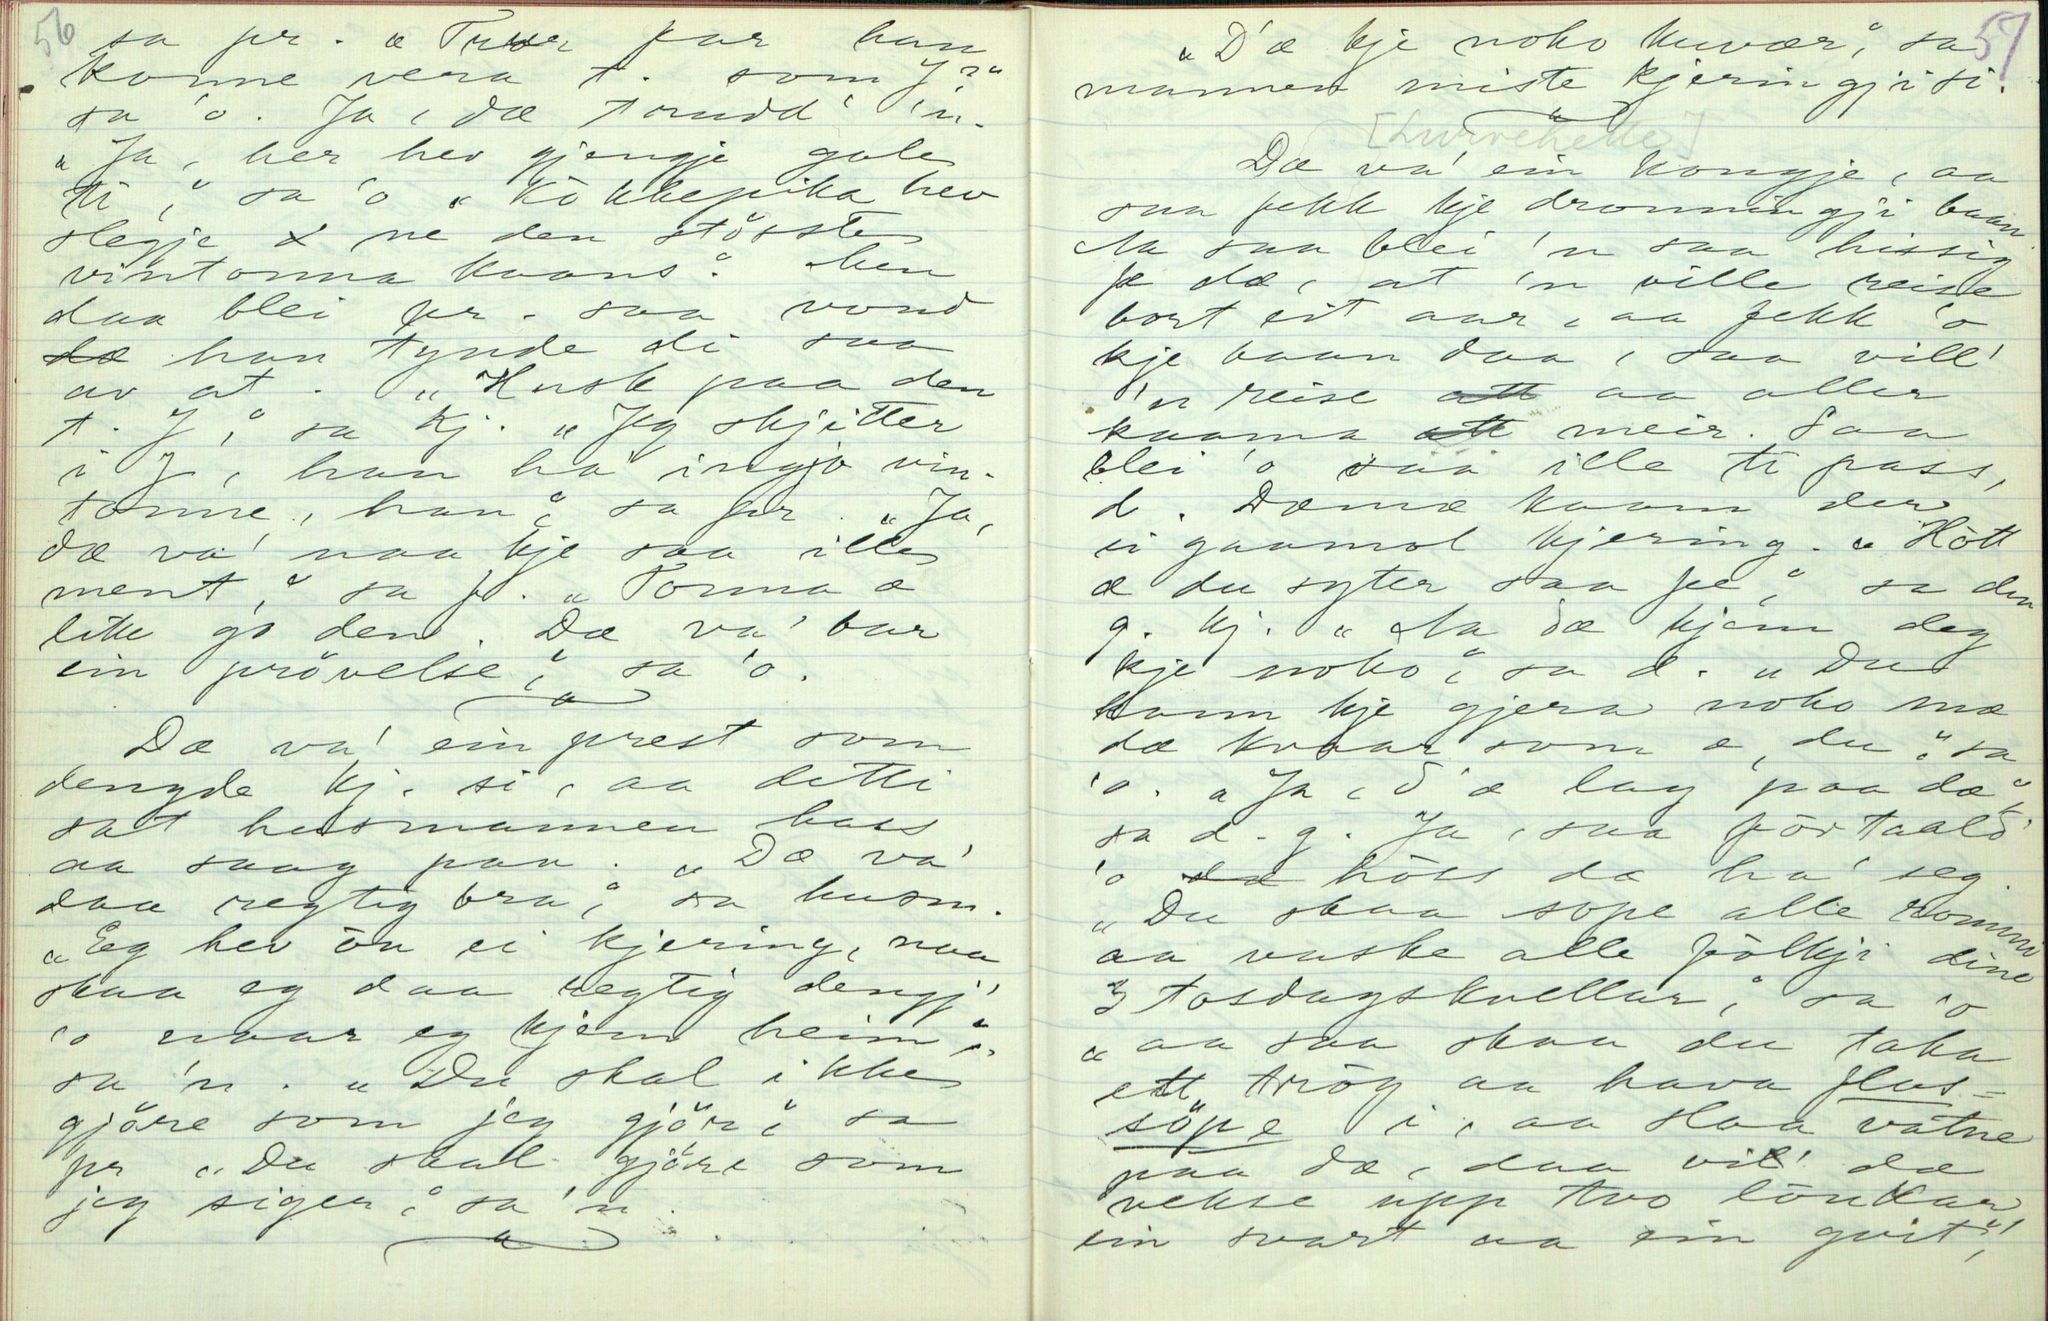 56
sa pr. „Truer far han
konne vera t. som J?“
sa 'o. Ja, dæ trudd' 'n.
„Ja, her hev gjengje gale
ti,“ sa 'o „Kökkepika hev
slegje ne den störste
vintonna kaans.“ Men
daa blei pr. saa vond
han tynde di saa
av at. „Husk paa den
t. J,“ sa kj. „Jeg skjitter
i J, han ha' ingjo vin-
tonne, han,“ sa pr. „Ja,
dæ va' naa kje saa ille
ment,“ sa f. „Tonna æ
like go den. Dæ va' bar
ein prövelse,“ sa 'o.
Dæ va' ein prest som
dengde kj. si, aa ditti
sat husmannen hass
aa saag paa. „Dæ va'
daa regtig bra,“ sa husm.
„Eg hev ön ei kjering, naa
skaa eg daa regtig dengj'
'o naar eg kjem heim,“
sa 'n. „Du skal ikke
gjöre som jeg gjör,“ sa
pr „Du skal gjöre som
jeg siger,“ sa 'n.
57
„D'æ kje noko kuvær,“ sa
mannen miste kjeringji si.
[Lurvehette]
Dæ va' ein kongje, aa
saa fekk kje dronningji baan.
Aa saa blei 'n saa hissig
fe dæ, at 'n ville reise
bort eit aar, aa fekk 'o
kje baan daa, saa vill'
'n reise aa aller
kaama meir. Saa
blei 'o saa ille ti pass,
d. Dæmæ kaam der
ei gaamol kjering. „Hött
æ du syter saa fe,“ sa den
g. kj. „Aa dæ kjem deg
kje noko,“ sa d. „Du
kann kje gjera noko mæ
dæ kvaar som æ, du“ sa
'o. „Ja, d'æ lag paa dæ,“
sa d. g. Ja, saa förtaald'
'o höss dæ ha' seg.
„Du skaa sope alle rommi
aa vaske alle fölkji dine
3 tosdagskvellar,“ sa 'o
„aa saa skaa du taka
ett trög aa hava flus-
söpe i, aa slaa vatne
paa dæ, daa vil' dæ
vekse upp tvo löukar
ein svart aa ein gvit,“